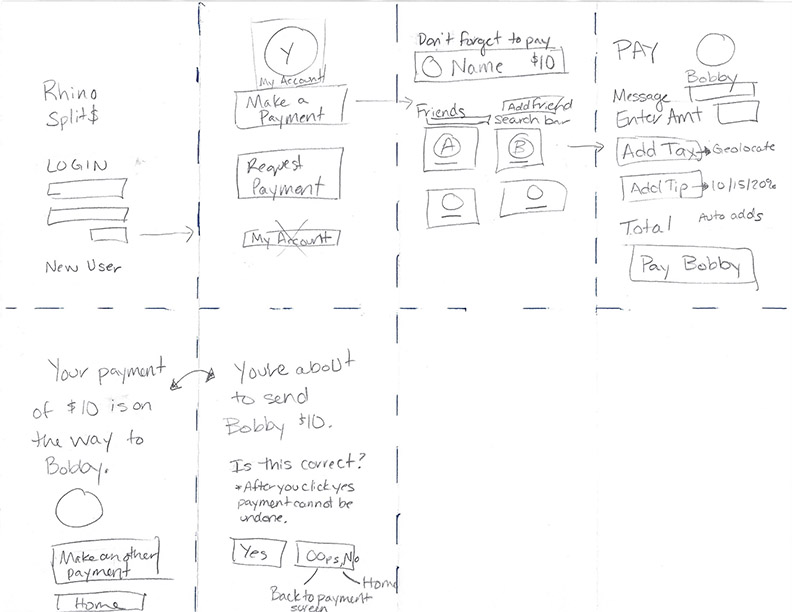 Rhino
Split$
LOGIN
New User
Y
My Account
Make a
Payment
Request
Payment
My Account
Don't forget to pay
Name $10
Friends
Add friend
Search bar
A
B
PAY
Bobby
Message
Enter Amt
Add Tax Geolocate
Add Tip 10/15/20%
Total Auto adds
Pay Bobby
Your payment
of $10 is on
the way to
Bobby.
Make another
payment
Home
You're about
to send
Bobby $10.
Is this correct?
*After you click yes
payment cannot be
undone.
Yes
Oops, No
Home
Back to payment
screen